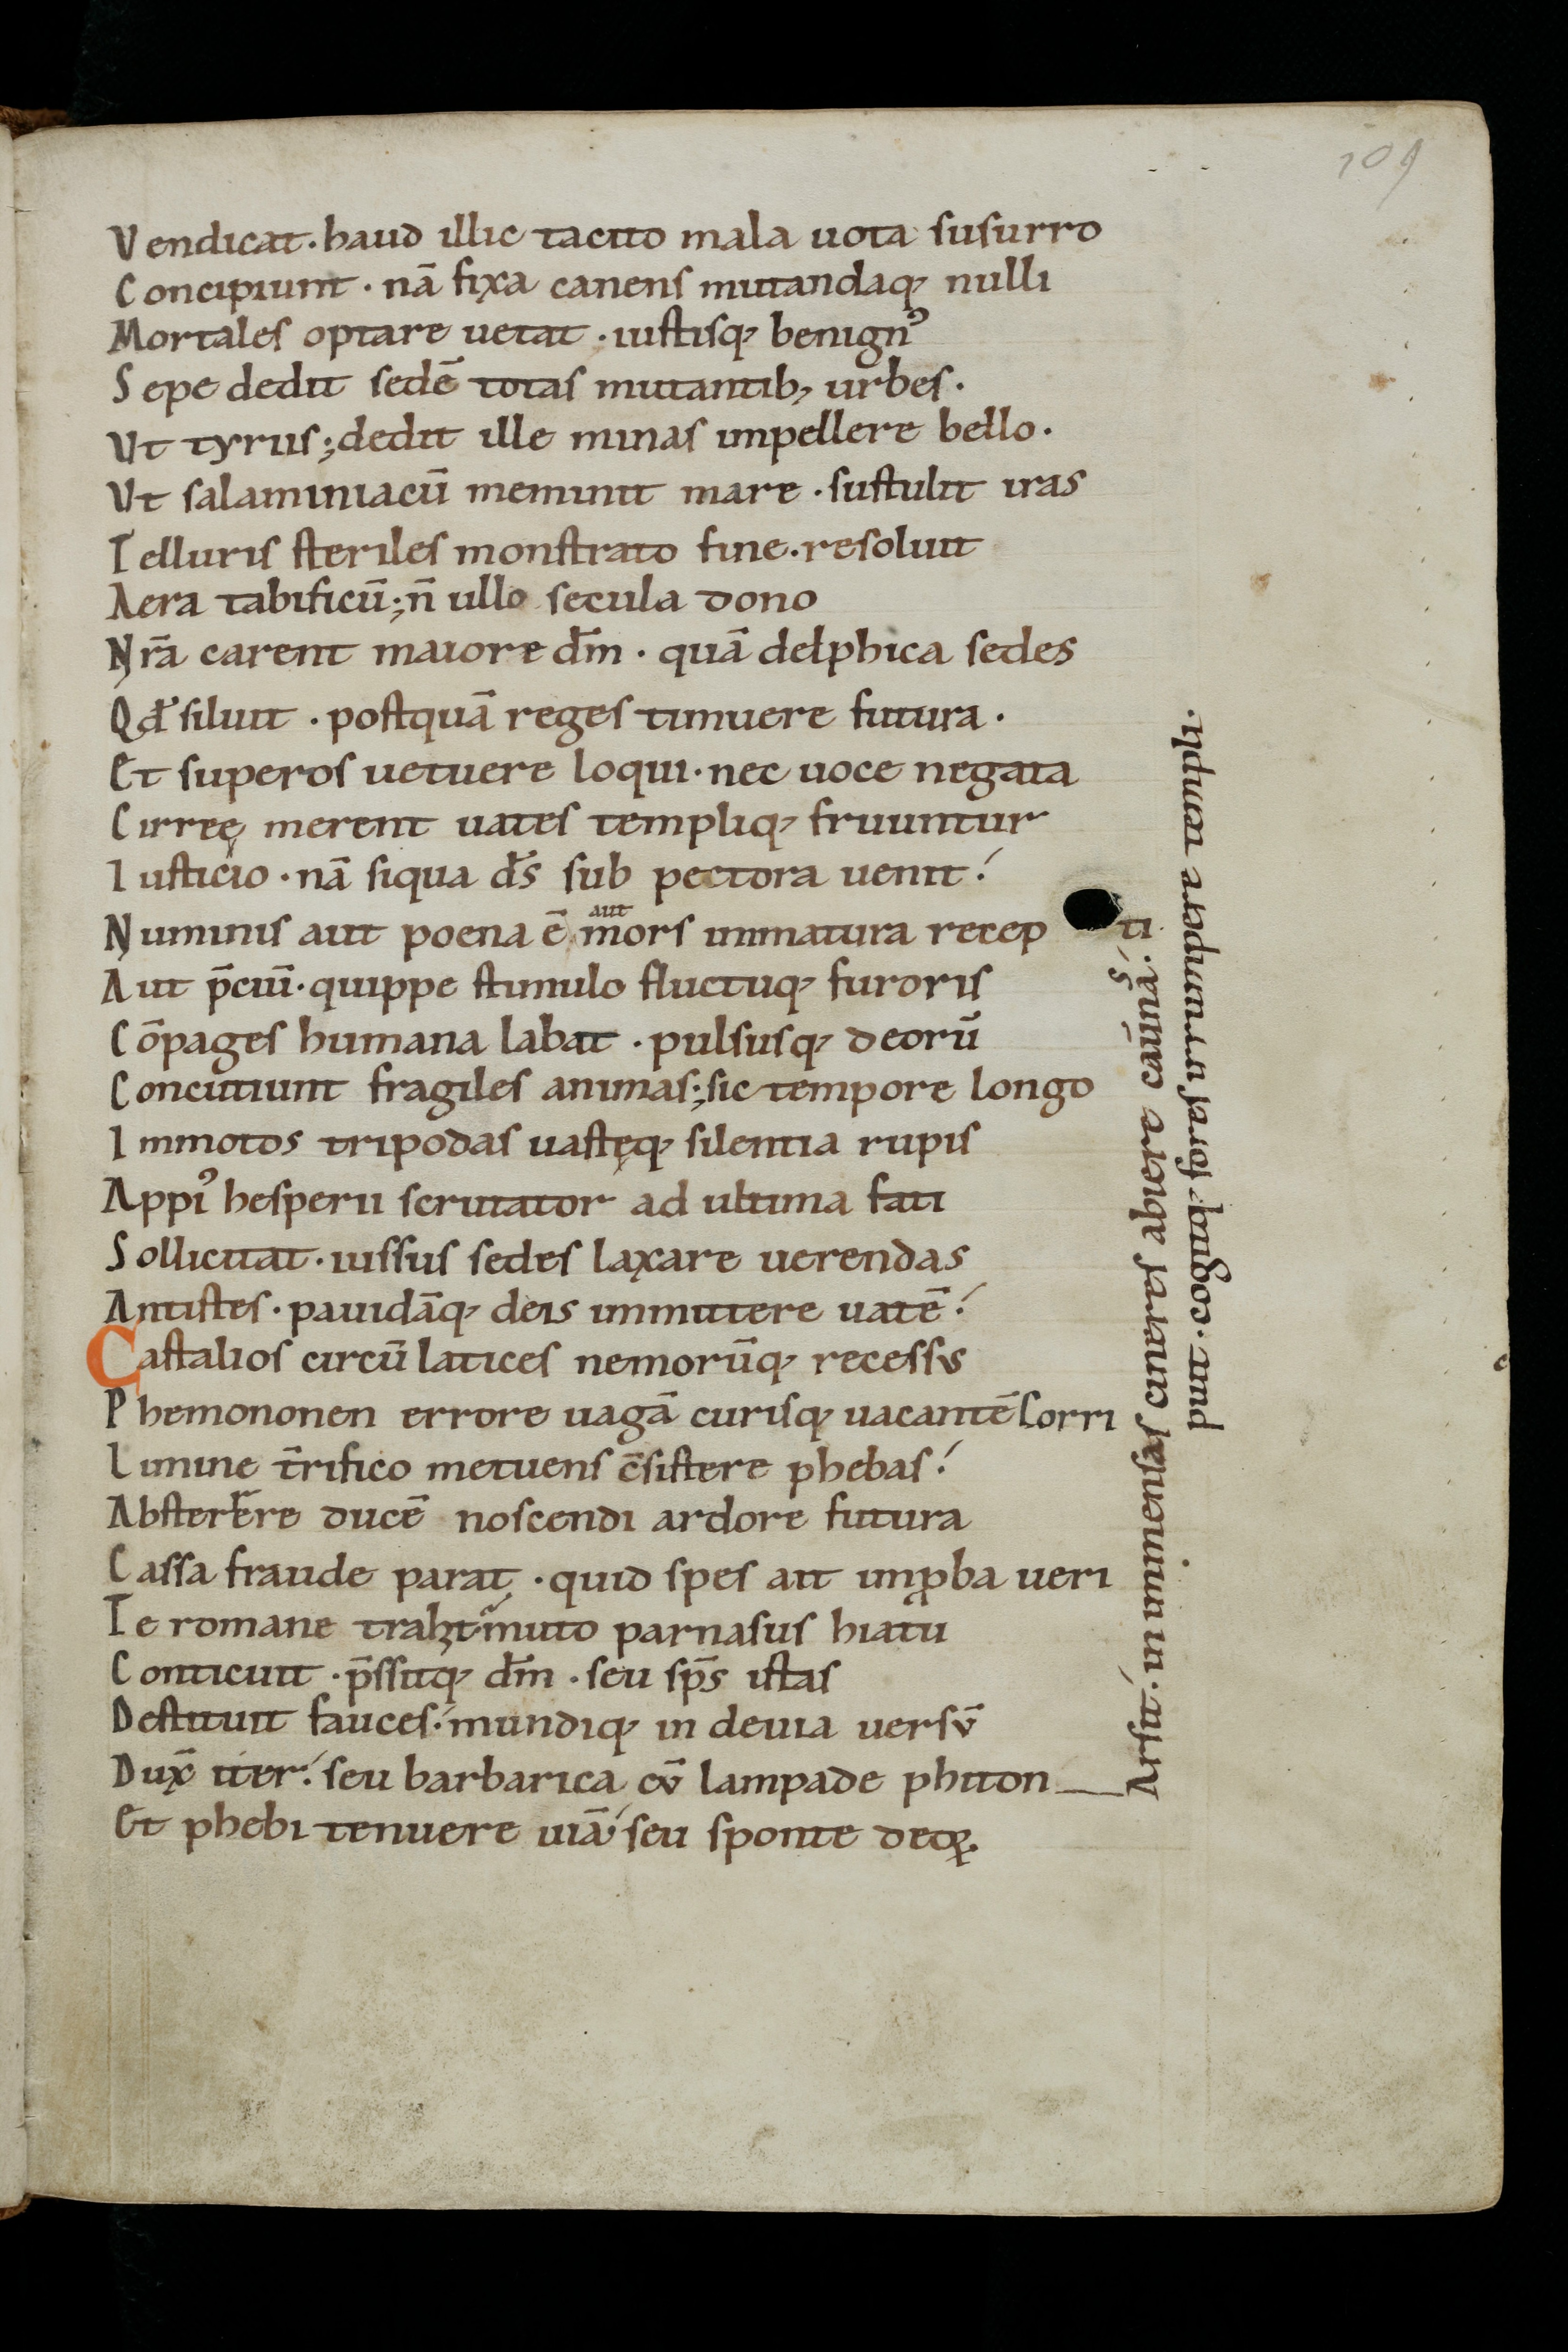 109
Vendicat. haud illic tacito mala uota susurro
Concipiunt. nā fixa canens mutandaq; nulli
Mortales optare uetat. iustisq; benignꝰ
Sepe dedit sedē totas mutantib; urbes.
Vt tyriis; dedit ille minas impellere bello.
Vt salaminiacū meminit mare. sustulit iras
Telluris steriles monstrato fine. resoluit
Aera tabificū; n̄ ullo secula dono
Nr̄a carent maiore dm̄. quā delphica sedes
Qd̄ siluit. postquā reges timuere futura.
Et superos uetuere loqui. nec uoce negata
Cirreę merent uates templiq; fruuntur
Iusticio. nā siqua ds̄ sub pectora uenit.
aut
Numinis aut poena ē mors immatura recep ti
Aut p̄ciū. quippe stimulo fluctuq; furoris
Cōpages humana labat. pulsusq; deorū
Concutiunt fragiles animas; sic tempore longo
Immotos tripodas uastęq; silentia rupis
Appiꝰ hesperii scrutator ad ultima fati
Sollicitat. iussus sedes laxare uerendas
Antistes. pauidāq; deis immittere uatē.
Castalios circū latices nemorūq; recessus
Phemononen errore uagā curisq; uacantē Corri
Limine t̄rifico metuens c̄sistere phebas.
Absterr̄ere ducē noscendi ardore futura
Cassa fraude parat. quid spes ait imꝓba ueri
Te romane trahit muto parnasus hiatu
Conticuit. p̄ssitq; dm̄. seu sp̄s istas
Destituit fauces. mundiq; in deuia uersū
Dux̄ iter. seu barbarica cū lampade phiton
Et phebi tenuere uiā seu sponte deoꝝ.
Arsit. in immensas cineres abiere cauūnas.
puit. cogimq; foras irrumpere templi.